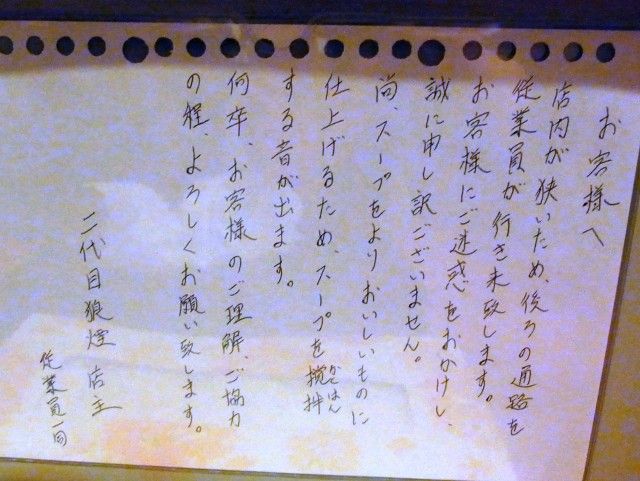 お客様へ
店内が狭いため、後ろの通路を
従業員が行き来致します。
お客様にご迷惑をおかけし、
誠に申し訳ございません。
尚、スープをよりおいしいものに
仕上げるため、スープを撹拌
かくはん
する音が出ます。
何卒、お客様のご理解、ご協力
の程、よろしくお願い致します。
二代目狼煙 店主
従業員一同